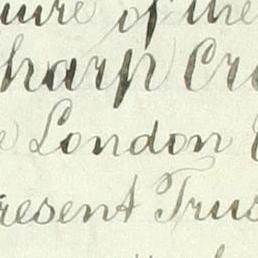 ure of the
harp Cr
e London
resent Trus